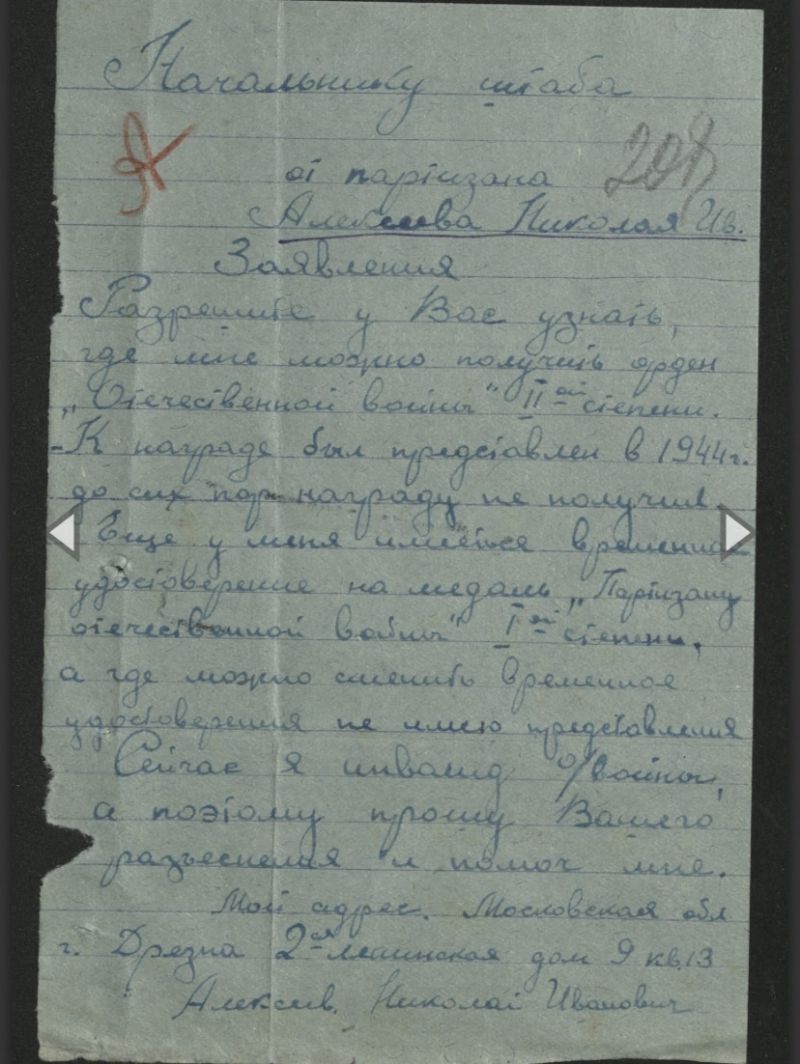 Начальнику штаба
208
от партизана
Алексеева Николая Ив.
Заявления
Разрешите у Вас узнать,
где мне можно получить орден
„Отечественной войны" II ой степени.
К награде был представлен в 1944 г.
до сих пор награду не получил.
Еще у меня имееться временное
удостоверение на медаль „Партизану
отечественной войны" I ой степени,
а где можно сменить временное
удостоверения не имею представления
Сейчас я инвалид о/войны,
а поэтому прошу Вашего
разъеснения и помоч мне.
Мой адрес. Московская обл
г. Дрезна 2ая Ленинская дом 9 кв. 13
Алексеев. Николай Иванович